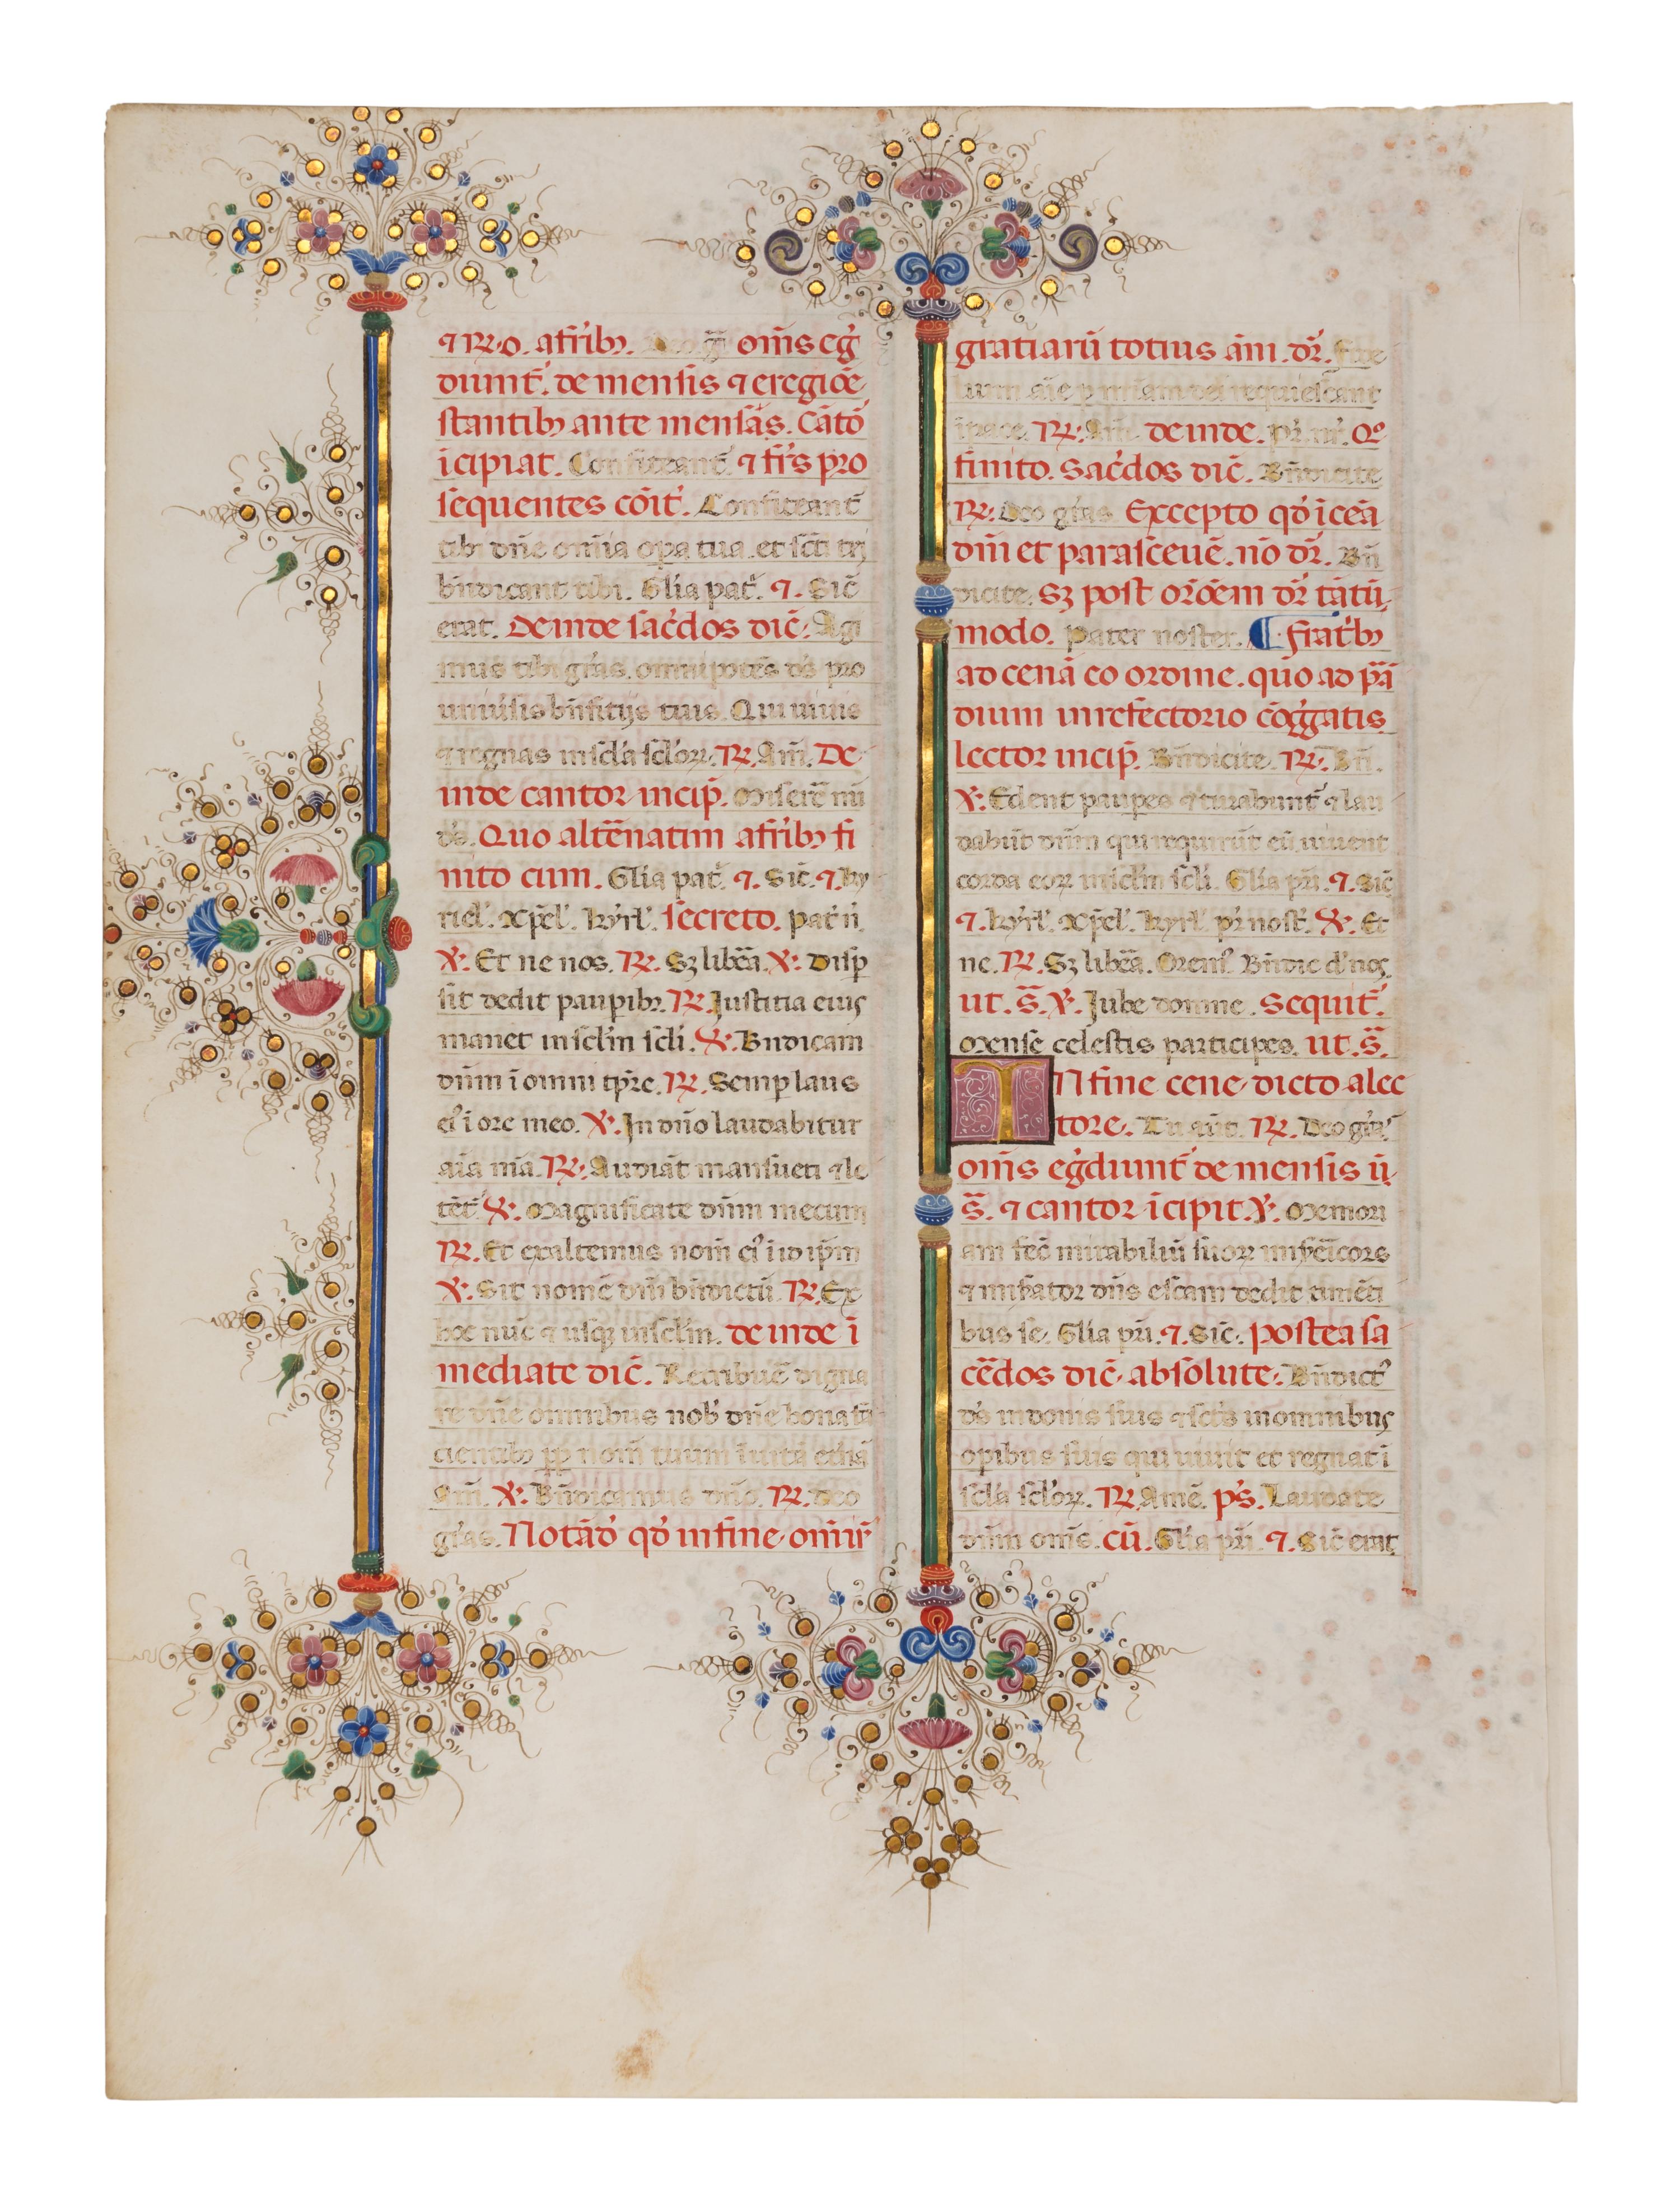 ⁊ ℞o. a fr̄ib⁊. Deo gr̄a. om̄s eg̓
diunt̓. de mensis ⁊ e regiōe
stantib⁊ ante mensas. Cātō
icipiat. Confiteant̓. ⁊ fr̄s pro
sequentes cōit̓. Confiteant̓
tibi dn̄e om̄ia opa tua. et sc̄i tui
bn̄dicant tibi. Gl̄ia pat̓. ⁊. Sic̄
erat. Deinde sac̓dos dic̄. Agi
mus tibi gr̄as. omnipotēs ds̄ pro
uniu̓sis bn̄fitijs tuis. Qui uiuis
⁊ regnas in scl̄a scl̄oꝝ. ℞. Am̄. De
inde cantor incip̄. Miserē nri
ds̄. Quo altēnatim a fr̄ib⁊ fi
nito cum. Gl̄ia pat̓. ⁊. Sic̄. ⁊ ky
riel̓. xp̄el̓. kyrl̓. secreto. pat̓ n̄.
℣. Et ne nos. ℞. Sꝫ libēa. ℣. Disp̄
sit dedit paupib⁊. ℞. Justitia eius
manet in scl̄m scl̄i. ℣. Bn̄dicam
dūm i omni tp̄re. ℞. Semp laus
ei̓ i ore meo. ℣. In dn̄o laudabitur
aīa mā. ℞. Audiāt mansueti ⁊ le
tēt̓. ℣. Magnificate dn̄m mecum
℞. Et exaltemus nom̄ ei̓ i id ip̄m
℣. Sit nomē dn̄i bn̄dictū. ℞. Ex
hoc nūc ⁊ usqꝫ in scl̄m. deinde ī
mediate dic̄. Retribuē digna
re dn̄e omnibus nob̓ dn̄e bona fa
cientib⁊ ꝓp nom̄ tuum uitā et̓nā
Am̄. ℣. Bn̄dicamus dn̄o. ℞. Deo
gr̄as. Notādō qō in fine oniū
gratiarū totius ān̄i. dr̄. Fide
lium aīe p mīam dei requiescant
ī pace. ℞. Am̄. deinde. pr̄ nr̄. Qo
finito. Sac̓dos dic̄. Bn̄dicite
℞. Deo gr̄as. Excepto qō ī cea
dn̄i et parasceuē. nō dr̄. Bn̄
dicite. Sꝫ post orōem dr̄ tātū
modo. Pater noster. ¶ Fratib⁊
ad cenā eo ordine. quo ad prā
dium in refectorio cōg̓gatis
lector incip̄. Bn̄dicite. ℞. Bn̄.
℣. Edent paupes ⁊ saturabunt̓ ⁊ lau
dabūt dn̄m qui requirūt eū uiuent
corda eoꝝ in scl̄m scl̄i. Gl̄ia pr̄i. ⁊. Sic̄
⁊. kyrl̓. xp̄el̓. kyrl̓. pr̄ nost̓. ℣. Et
ne. ℞. Sꝫ libēa. Orem̓. Bn̄dic d̓ nos
ut. s̄. ℣. Jube domne. Sequit̓.
Mense celestis participes. ut. s̄.
IN fine cene dicto a lec
tore. Tu aūt. ℞. Deo gr̄as̓
oms̄ eg̓diunt̓ de mensis ū
s̄. ⁊ cantor icipit. ℣. Memori
am fec̄ mirabiliū suoꝝ mīsēicors
⁊ mīsator dn̄s escam dedit timēti
bus se. Gl̄ia pr̄i. ⁊. Sic̄. postea sa
cēdos dic̄ absolute. Bn̄dict̓
ds̄ in donis suis ⁊ sc̄s in omnibus
opibus suis qui uiuit et regnat ī
scl̄a scl̄oꝝ. ℞. Amē. ps̄. Laudate
dn̄m om̄s. cū. Gl̄ia pr̄i. ⁊. Sic̄ erat